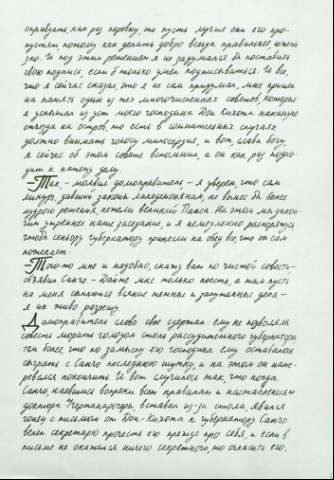 оправдать, как раз поровну, то пусть лучше они его про-
пустят, потому как делать добро всегда правильнее, нежели
зло. И под этим решением я не задумался бы поставить
свою подпись, если б только умел подписываться. И все,
что я сейчас сказал, это я не сам придумал, мне пришел
на память один из тех многочисленных советов, которые
я услышал из уст моего господина Дон Кихота накануне
отъезда на остров, то есть в сомнительных случаях
должно внимать голосу милосердия, и вот, слава богу,
я сейчас об этом совете вспомнил, а он как раз подхо-
дит к нашему делу.
– Так, – молвил домоправитель – я уверен, что сам
Ликург, давший законы лакедемонянам, не вынес бы более
мудрого решения, нежели великий Панса. На этом мы закон-
чим утреннее наше заседание, и я немедленно распоряжусь
чтобы сеньору губернатору принесли на обед все, что он сам
пожелает.
– Того-то мне и надобно, скажу вам по чистой совести-
объявил Санчо – Дайте мне только поесть, а там пусть
на меня сыплются всякие темные и запутанные дела –
я их живо разрешу.
Домоправитель слово свое сдержал: ему не позволяла
совесть морить голодом столь рассудительного губернатора
тем более, что по замыслу его господина ему оставалось
сыграть с Санчо последнюю шутку, и на этом он наме-
ревался покончить. И вот случилось так, что когда
Санчо, наевшись вопреки всем правилам и наставлениям
доктора Нестерпимо, вставал из-за стола, явился
гонец с письмом от Дон-Кихота к губернатору. Санчо
велел секретарю прочесть его прежде про себя, и если в
письме не окажется ничего секретного, то огласить его.